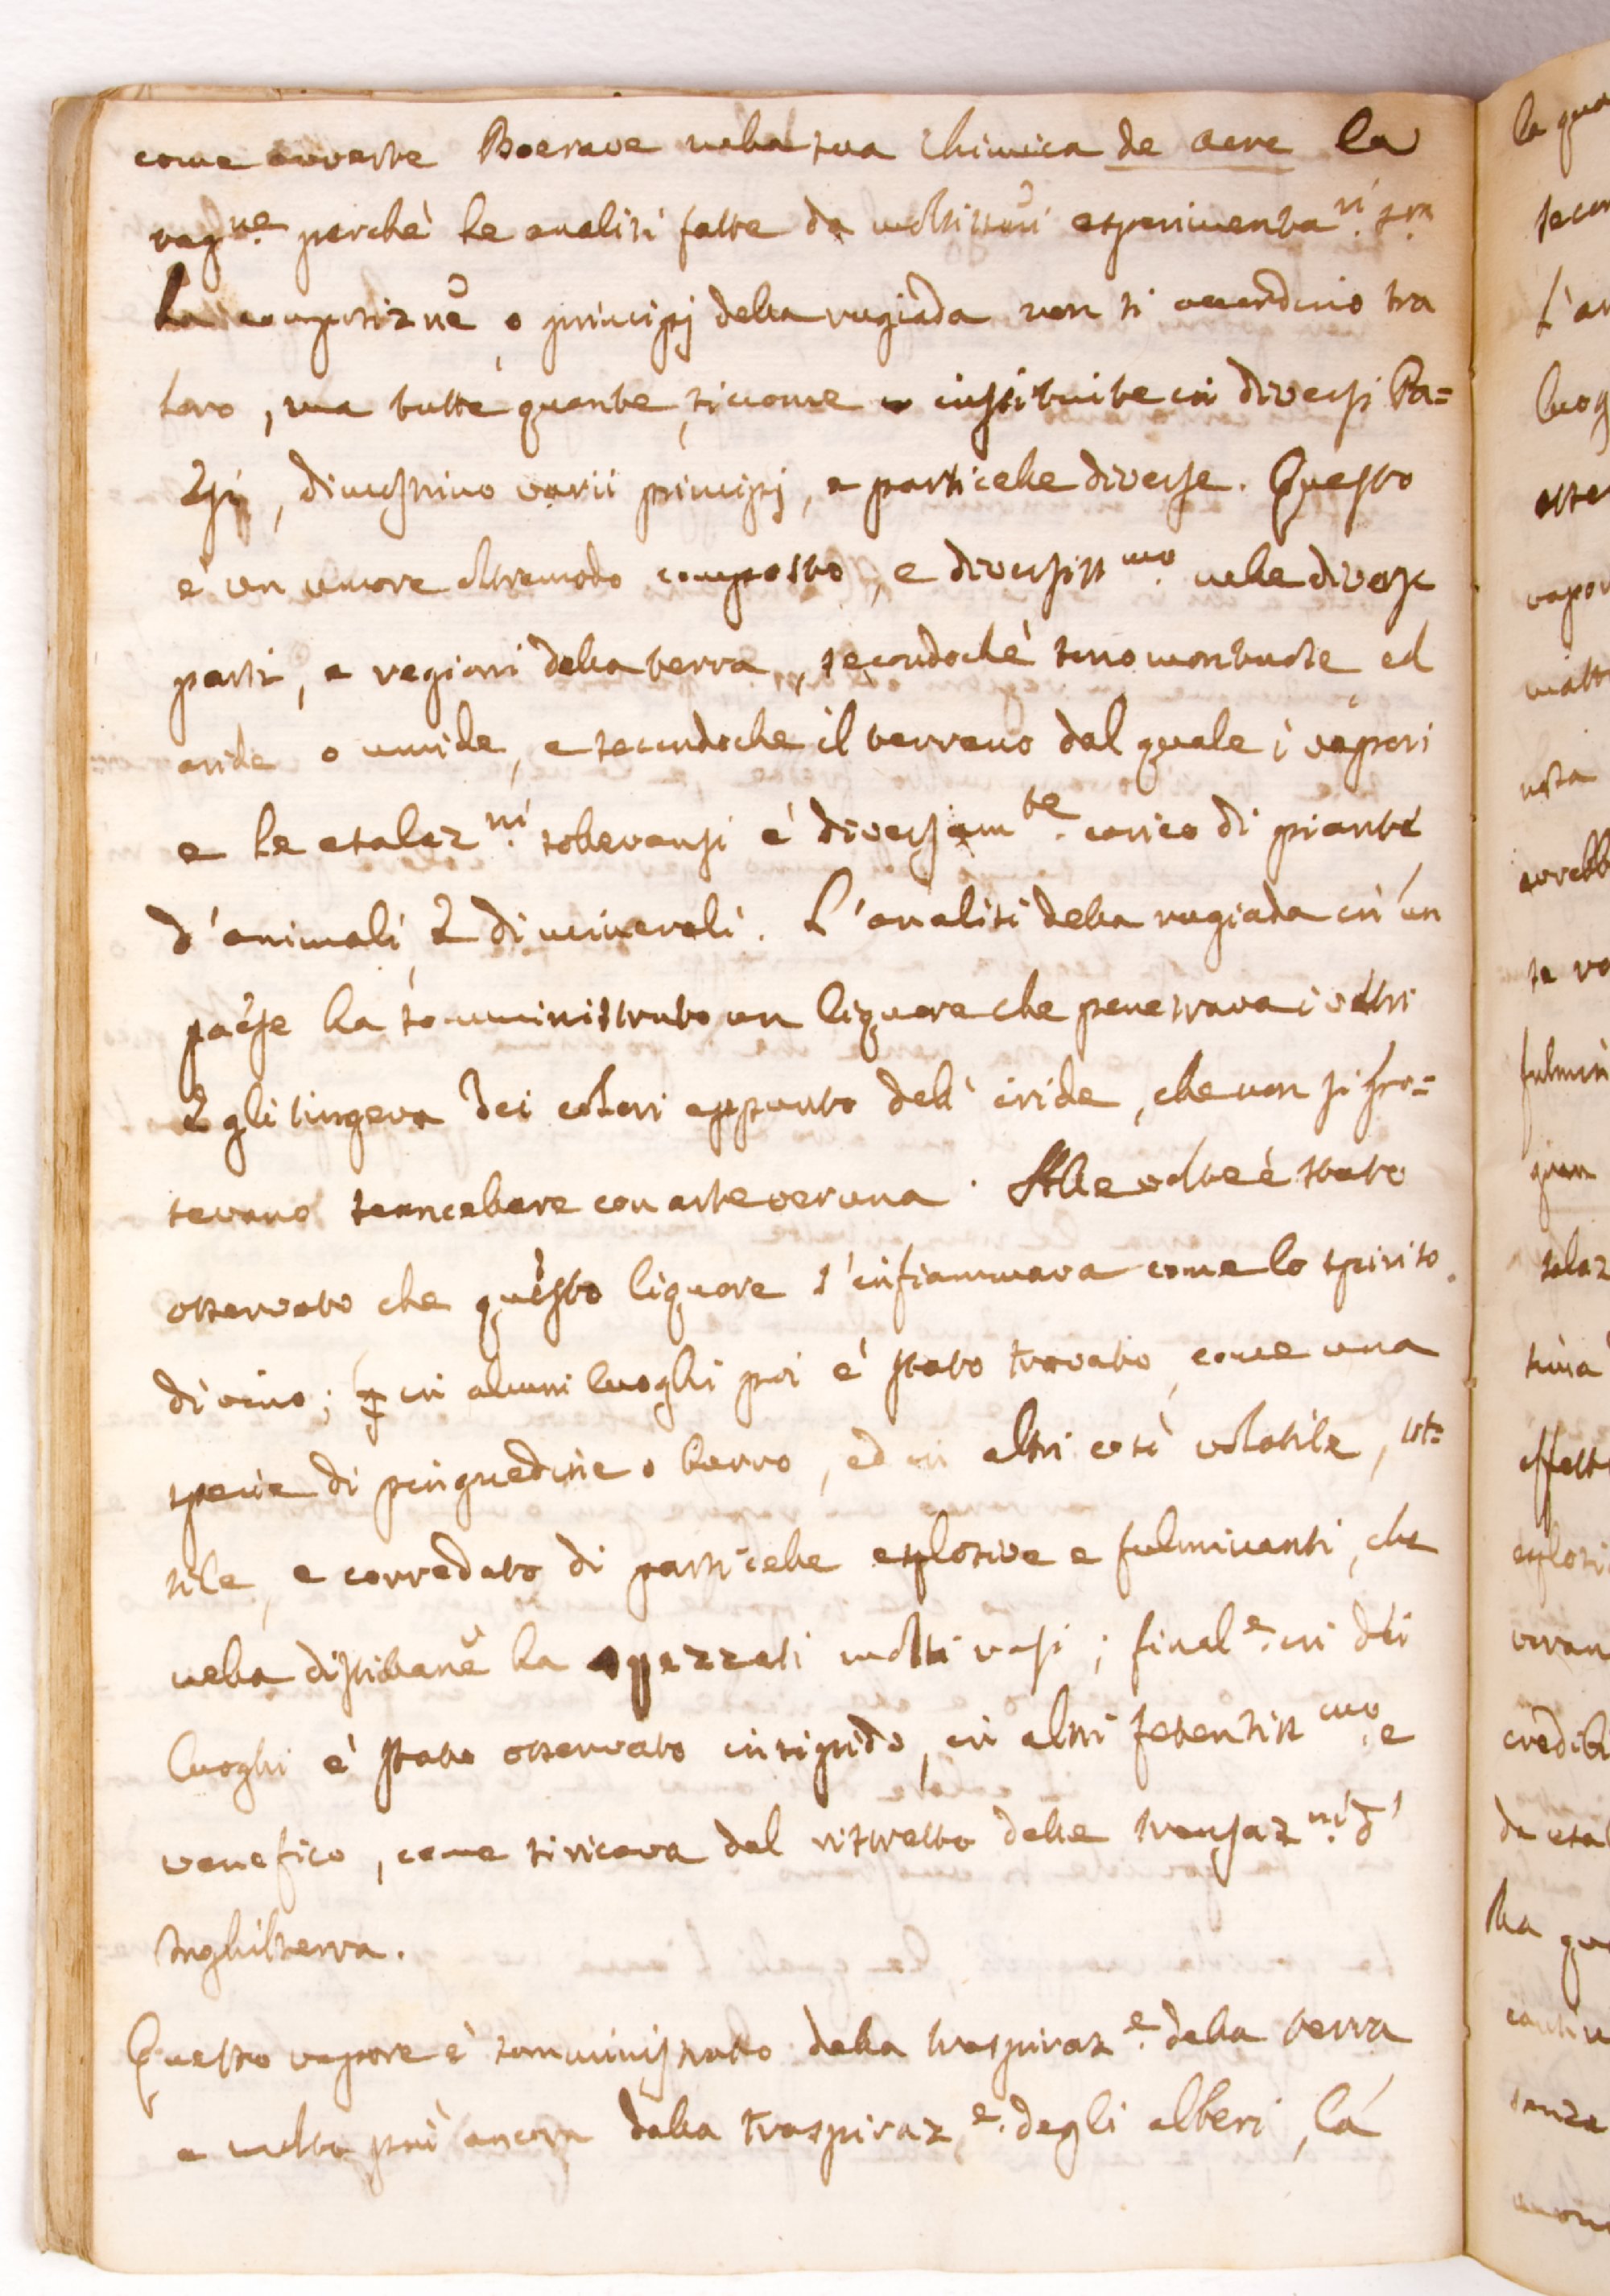 come avverte Boerave nella sua Chimica de aere la
rag.ne perchè le analisi fatte da moltissimi esperimenta.ri
la composizne o principj della rugiada non si accordino tra
loro, ma tutte quante, siccome instituite in diversi Pa=
esi, dimostrino varii principj, e particelle diverse. Questo
è un umore oltremodo composto, e diversiss.mo nelle diverse
parti, e regioni della terra, secondochè sono montuose ed
aride o umide, e secondoche il terreno dal quale i vapori
e le esalaz.ni sollevansi è diversam.te carico di piante
d'animali e di minerali. L'analisi della rugiada in un
paese ha somministrato un liquore che penetrava i vetri
e gli tingeva dei colori appunto dell'iride, che non si po=
tevano scancellare con arte veruna. Alle volte è stato
osservato che questo liquore s'infiammava come lo spirito
di vino; in alcuni luoghi poi è stato trovato come una
specie di pinguedine o burro, ed in altri così volatile, sot=
tile, e corredato di particelle esplosive e fulminanti, che
nella distillane ha spezzati molti vasi; final.e in dei
luoghi è stato osservato insipido, in altri fetentiss.mo e
venefico, come si ricava dal ristretto delle transaz.ni d'
Inghilterra.
Questo vapore è somministrato dalla traspiraz.e della terra
e molto più ancora dalla traspiraz.e degli alberi, la